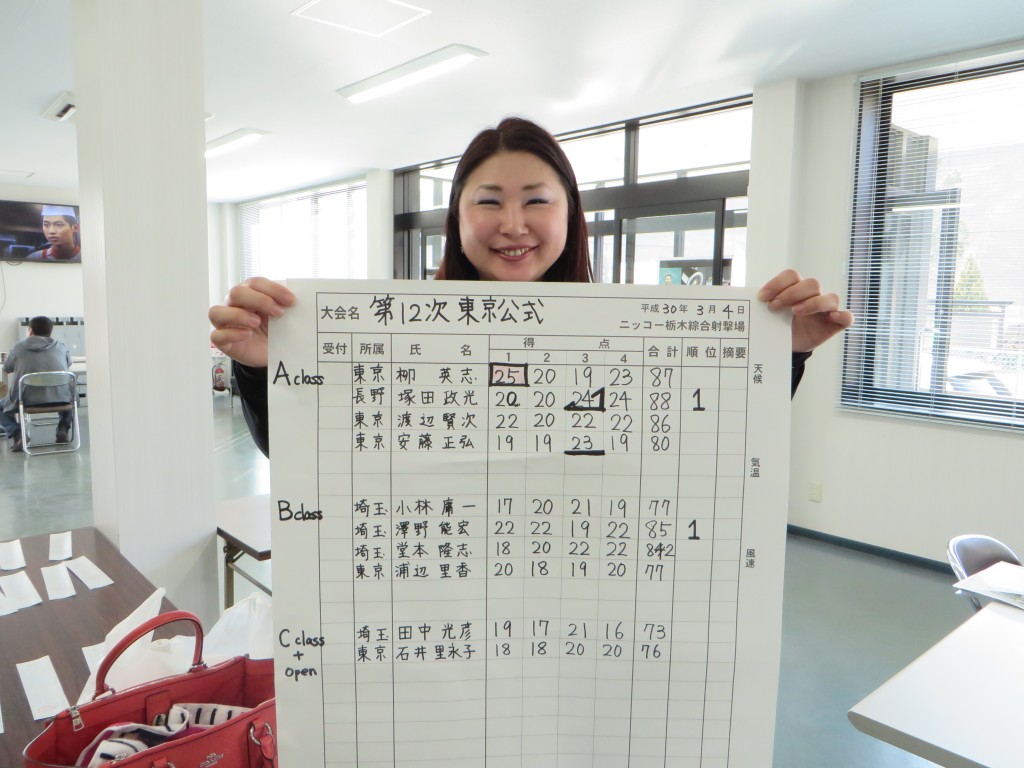 大会名 第12次 東京公式
平成30年 3月 4日
ニッコー栃木綜合射撃場
受付 所属 氏 名 得 点 合計 順位 摘要
1 2 3 4
A class 東京 柳 英志 25 20 19 23 87
長野 塚田 政光 20 20 24 24 88 1
東京 渡辺 賢次 22 20 22 22 86
東京 安藤 正弘 19 19 23 19 80
B class 埼玉 小林 庸一 17 20 21 19 77
埼玉 澤野 能宏 22 22 19 22 85 1
埼玉 堂本 隆志 18 20 22 22 82
東京 浦辺 里香 20 18 19 20 77
C class 埼玉 田中 光彦 19 17 21 16 73
+ 東京 石井 里永子 18 18 20 20 76
open
天候
気温
風速
COACH